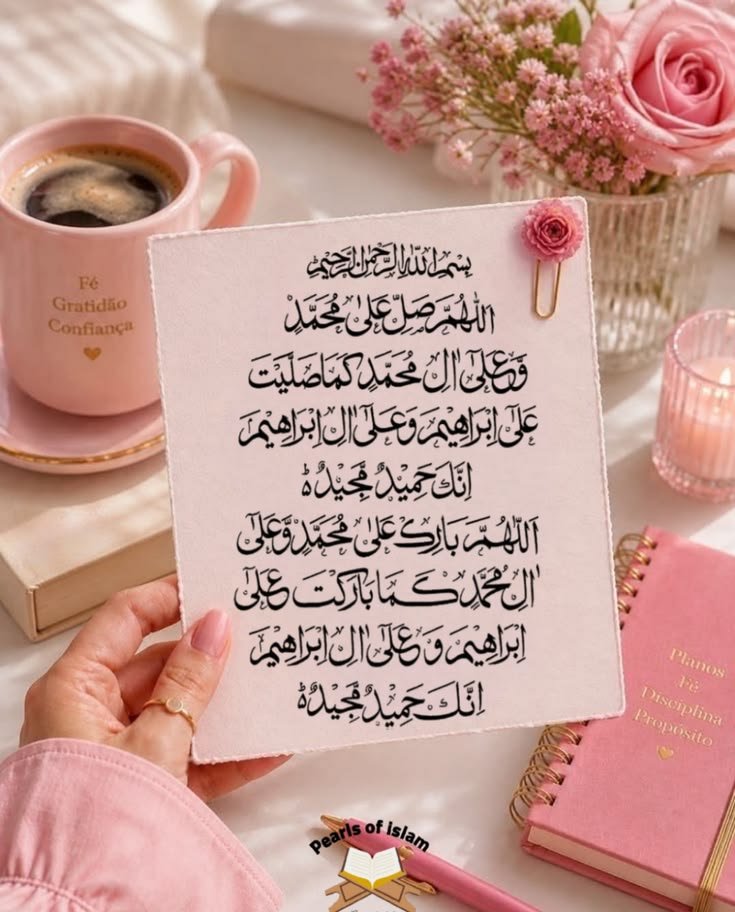 Fé
Gratidão
Confiança
بِسْمِ اللّٰهِ الرَّحْمٰنِ الرَّحِيْمِ
اَللّٰهُمَّ صَلِّ عَلٰى مُحَمَّدٍ
وَّعَلٰٓى اٰلِ مُحَمَّدٍ كَمَا صَلَّيْتَ
عَلٰٓى اِبْرَاهِيْمَ وَعَلٰٓى اٰلِ اِبْرَاهِيْمَ
اِنَّكَ حَمِيْدٌ مَّجِيْدٌ ؕ
اَللّٰهُمَّ بَارِكْ عَلٰى مُحَمَّدٍ وَّعَلٰٓى
اٰلِ مُحَمَّدٍ كَمَا بَارَكْتَ عَلٰٓى
اِبْرَاهِيْمَ وَعَلٰٓى اٰلِ اِبْرَاهِيْمَ
اِنَّكَ حَمِيْدٌ مَّجِيْدٌ ؕ
Planos
Fé
Disciplina
Propósito
Pearls of islam